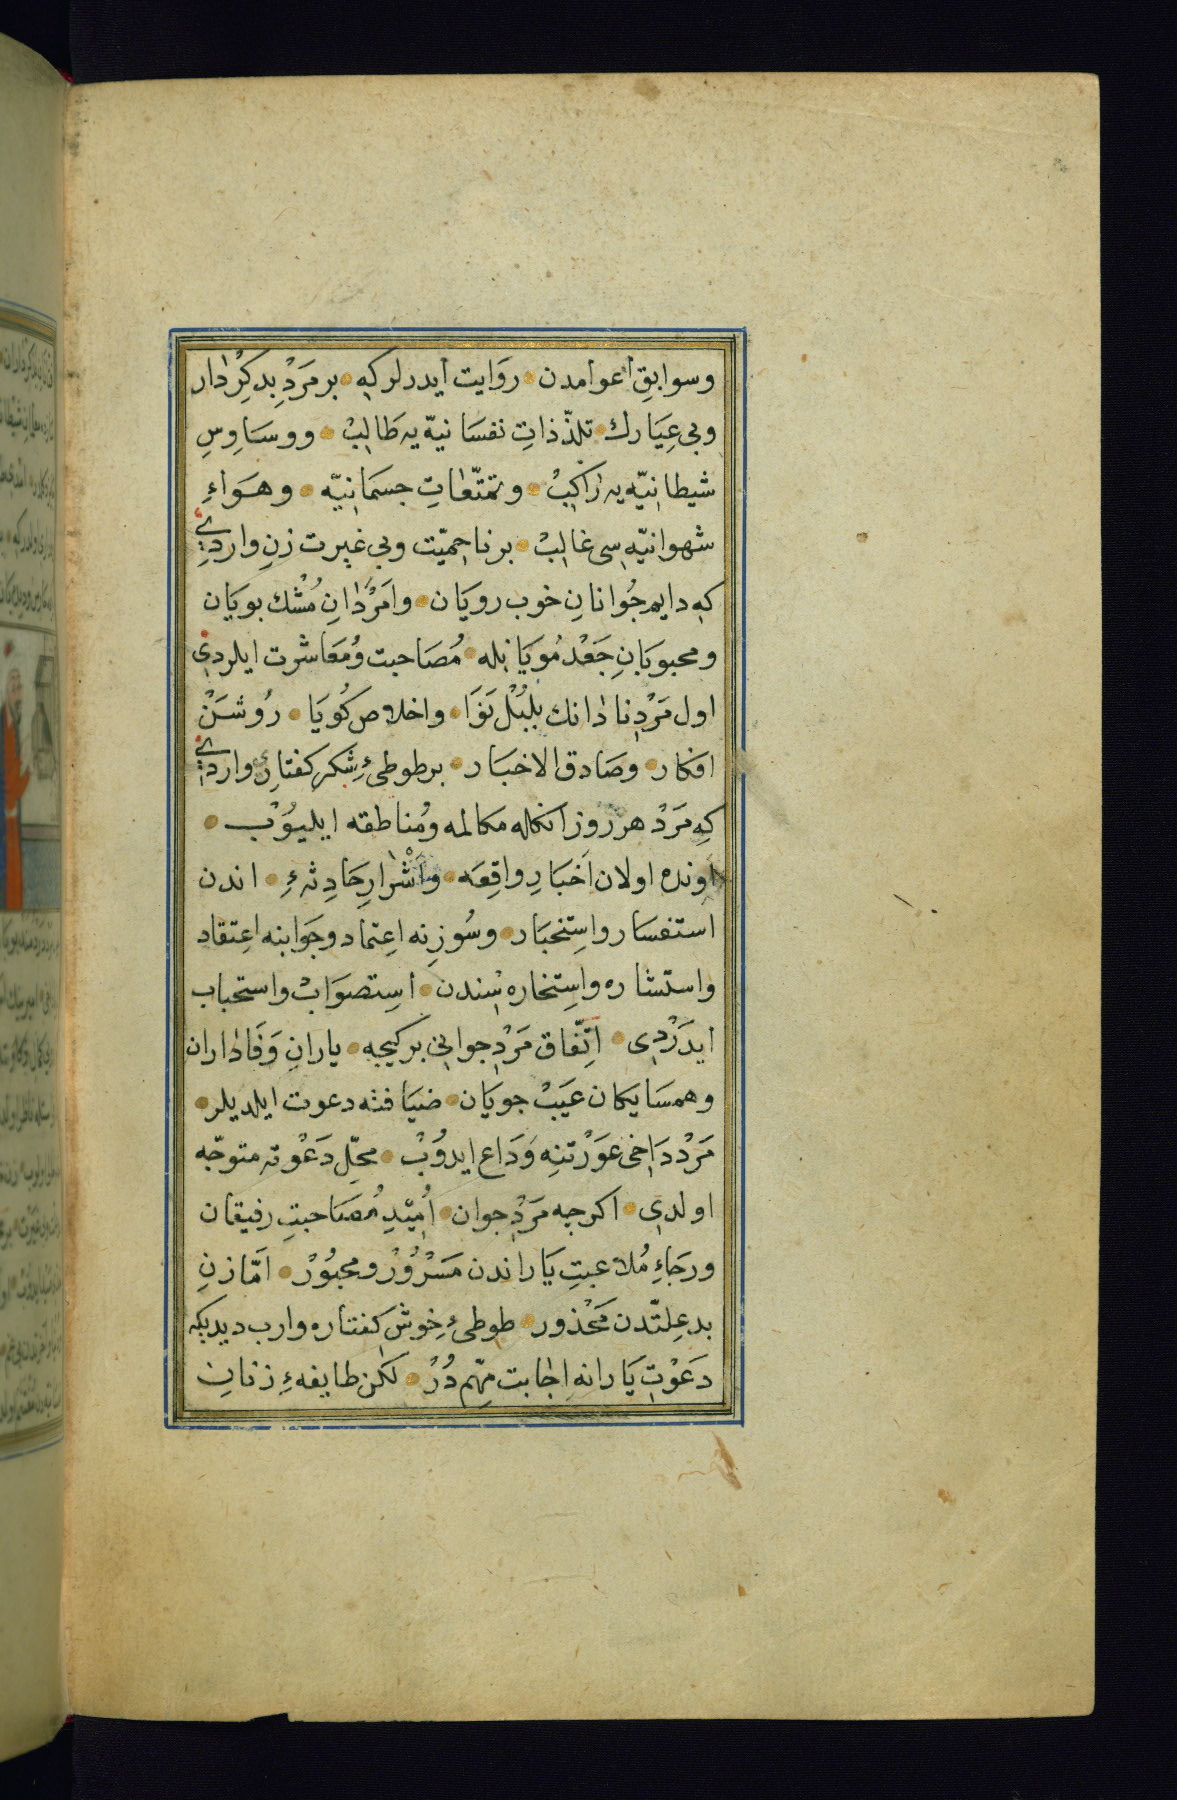 وسوابقِ اعوامدن روَايت ايدرلر كه بر مَرْدِ بد كِرْدار
وبى عِيَارك تلذّذاتِ نفسَانيّه يه طَالِبْ ووسَاوِسِ
شيطانيّه يه رَاكبْ وتمتّعاتِ جسمَانيّه وهَواءِ
شهوانيّه سى غالِبْ بر ناحميّت وبى غيرت زنِ واردى
كه دايم جُوانانِ خوب رويَان وامْرَدَانِ مُشْك بويَان
ومحبوبَانِ جَعْدمُويَانله مُصَاحبت ومُعَاشرت ايلردى
اول مَرْدِ نادانك بلبُلْ نَوَا واخلاص كُويَا رُوشَنْ
افكار وصَادق الاخبَار بر طوطئِ شكر كفتارى واردى
كِه مَرْد هر روز انكله مكالمه ومُناطقه ايليوُبْ
اونده اولان اَخبَارِ واقِعَه واَشْرَارِ حَادِثهءِ اندن
استفسار واستِخبَار وسُوزِنه اعِتماد وجَوابنه اعِتقاد
واستشاره واستِخاره سندن استِصوَابْ واستحباب
ايدَرْدى اتِّفاق مَرْدِ جوانى بر كيجه يارانِ وَفَاداران
وهمسَايكان عَيَبْ جويَان ضيَافته دعوت ايلديلر
مَرْد دَاخى عَوْرتنِه وَدَاع ايدُوبْ محلِّ دَعْوته متوجّه
اولدى اكرچه مَرْدِ جوان اُميّدِ مُصَاحبتِ رفيقان
ورجَاءِ مُلاعبتِ يَاراندن مَسْرُوُرْ ومحبُوُرْ امّا زنِ
بد عِلتّدن مَحْذور طوطىءِ خوش كفتاره وارب ديديكه
دَعْوتِ يَارانه اجابت مهّم دُرْ لكن طايفهءِ زنانِ